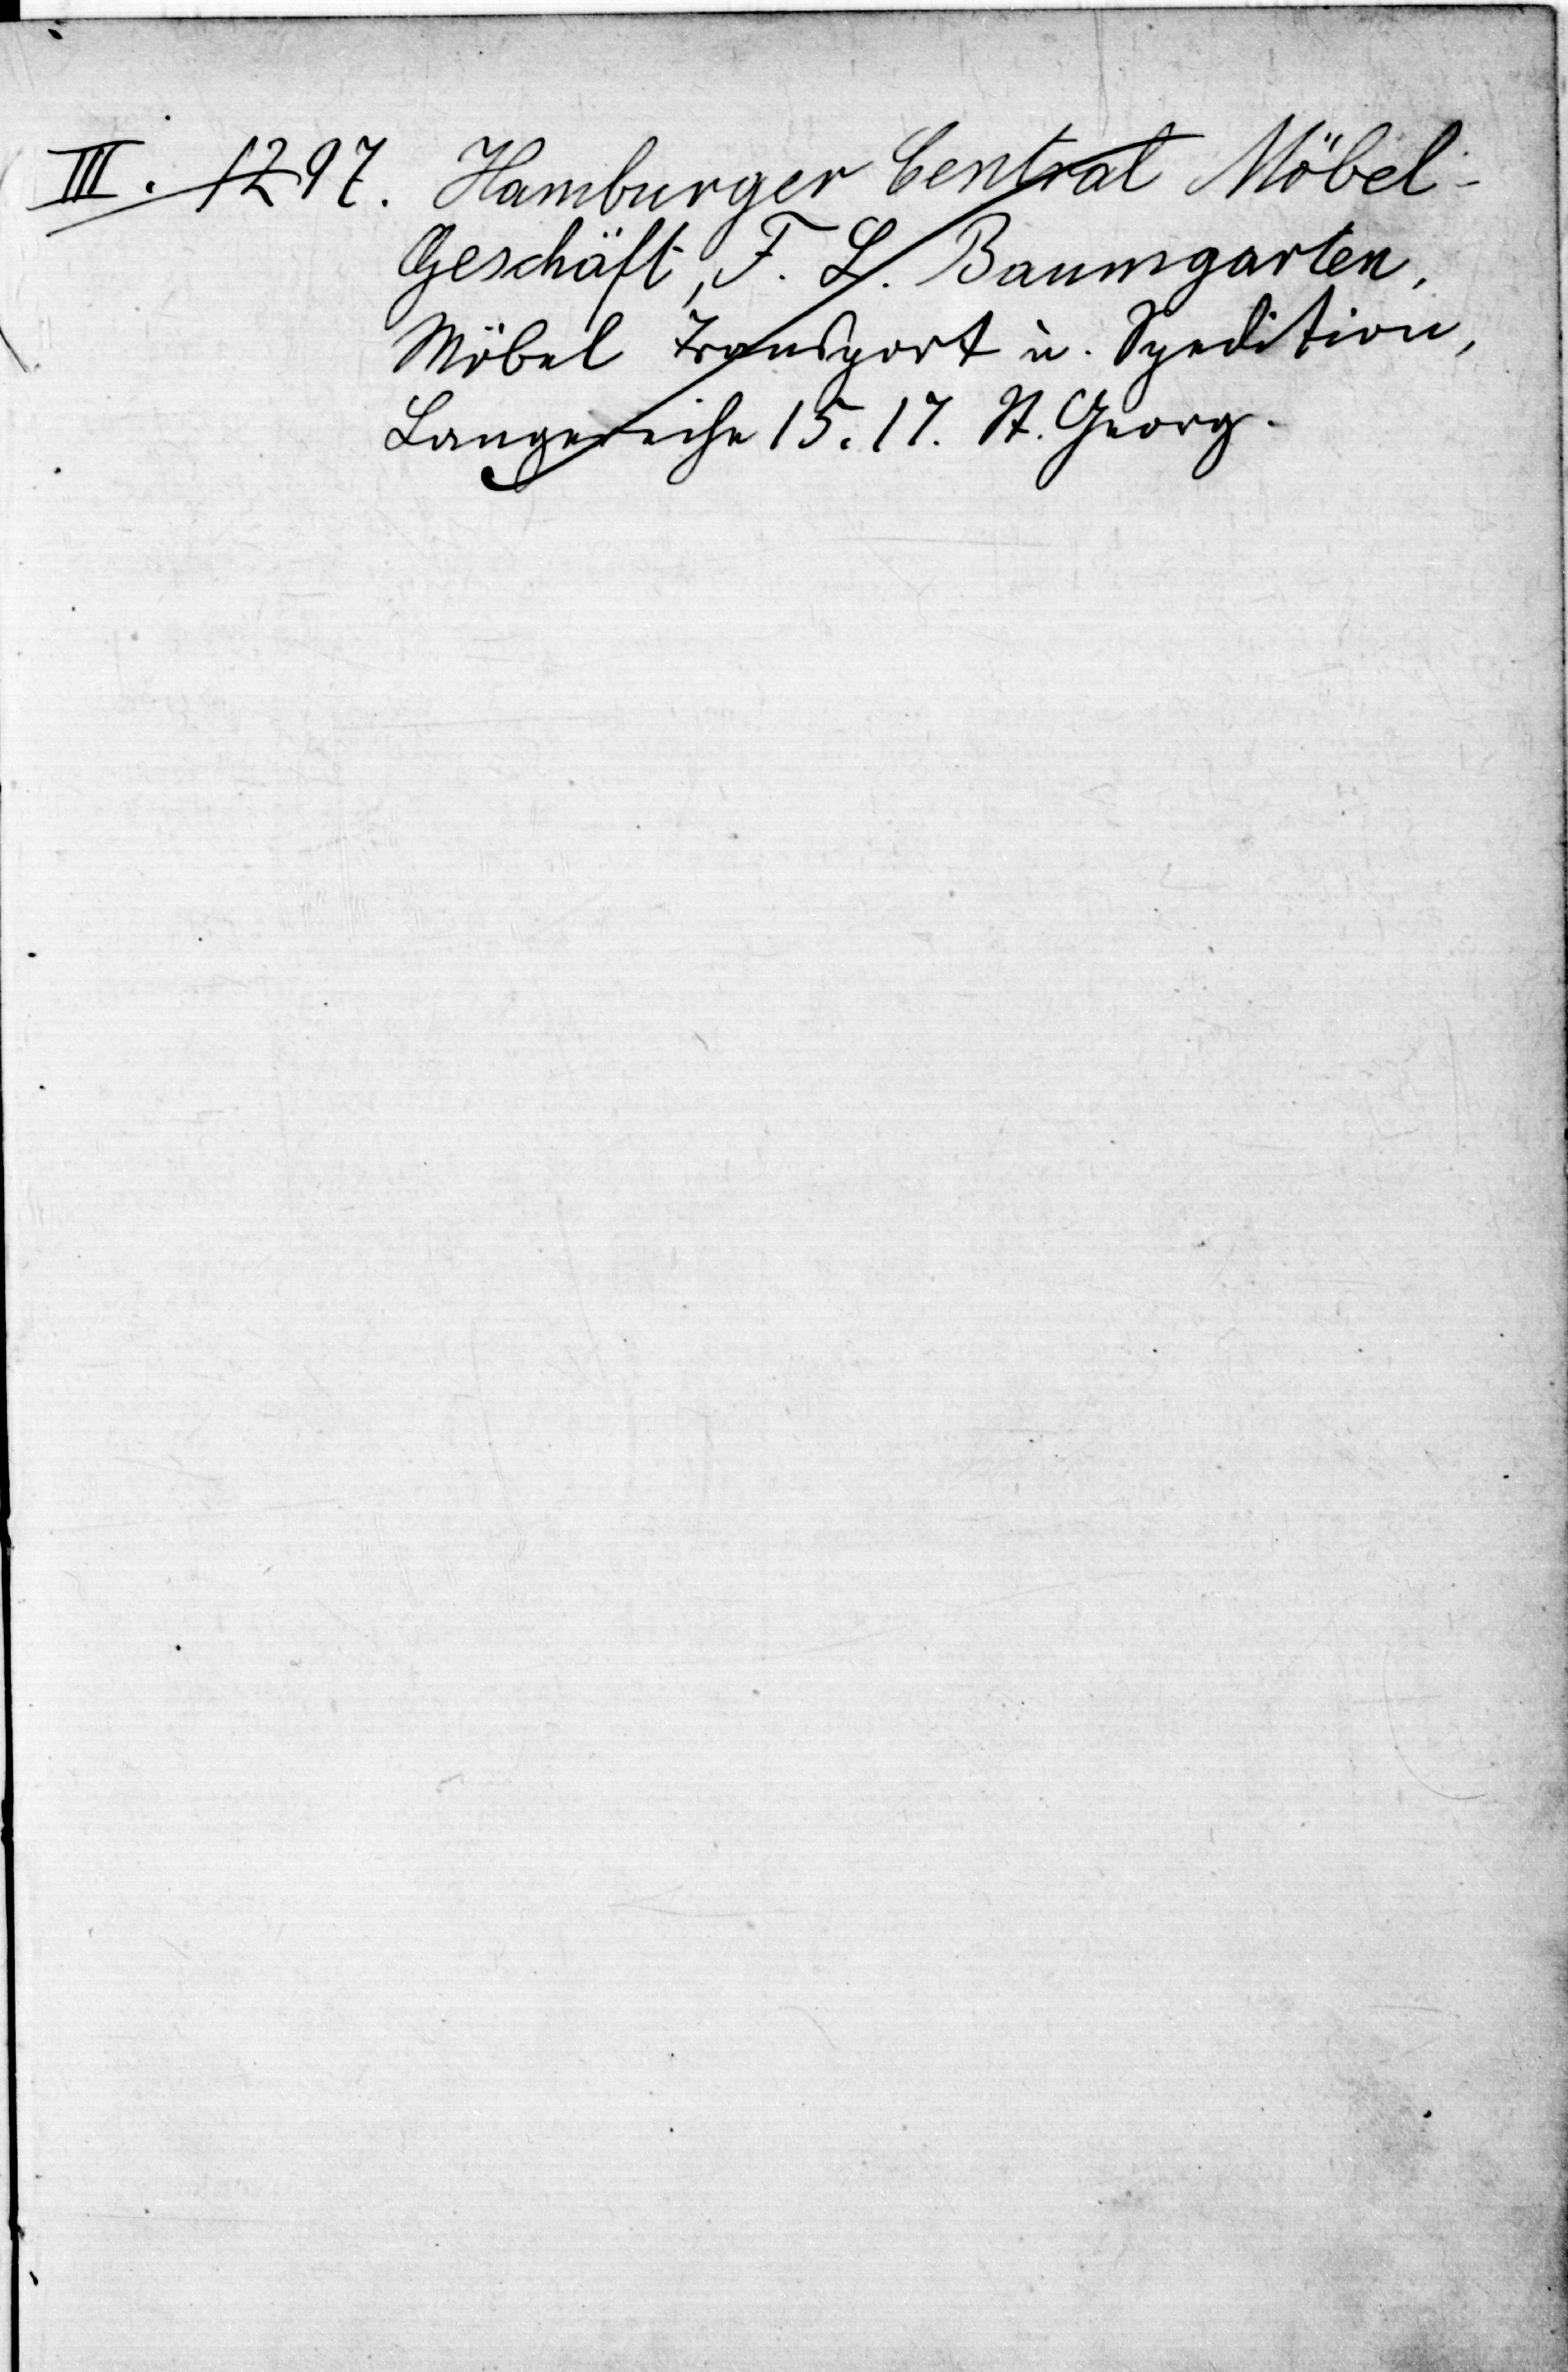 III. 1297. Hamburger Central Möbel-
Geschäft, F. L. Baumgarten,
Möbel Transport u. Spedition,
Langereihe 15. 17. St. Georg.